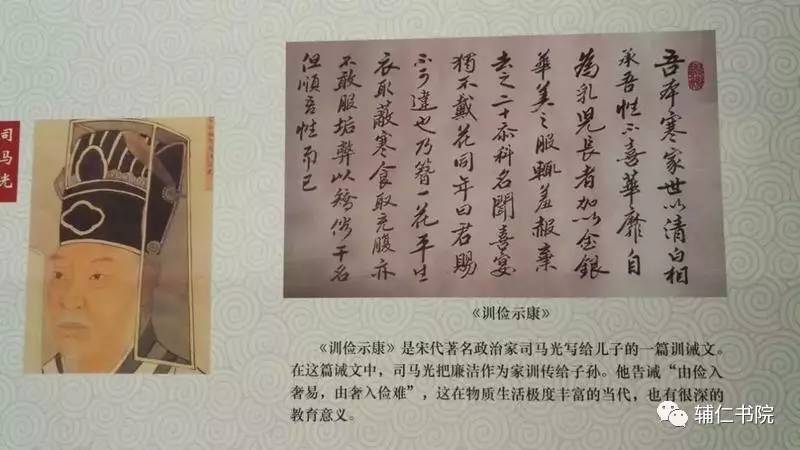 司马光
吾本寒家世以清白相
承吾性不喜華靡自
為乳兒長者加以金銀
華美之服輒羞赧棄
去之二十忝科名聞喜宴
獨不戴花同年曰君賜
不可違也乃簪一花平生
衣取蔽寒食取充腹亦
不敢服垢弊以矯俗干名
但順吾性而已
《训俭示康》
《训俭示康》是宋代著名政治家司马光写给儿子的一篇训诫文。
在这篇诫文中，司马光把廉洁作为家训传给子孙。他告诫“由俭入
奢易，由奢入俭难”，这在物质生活极度丰富的当代，也有很深的
教育意义。
辅仁书院